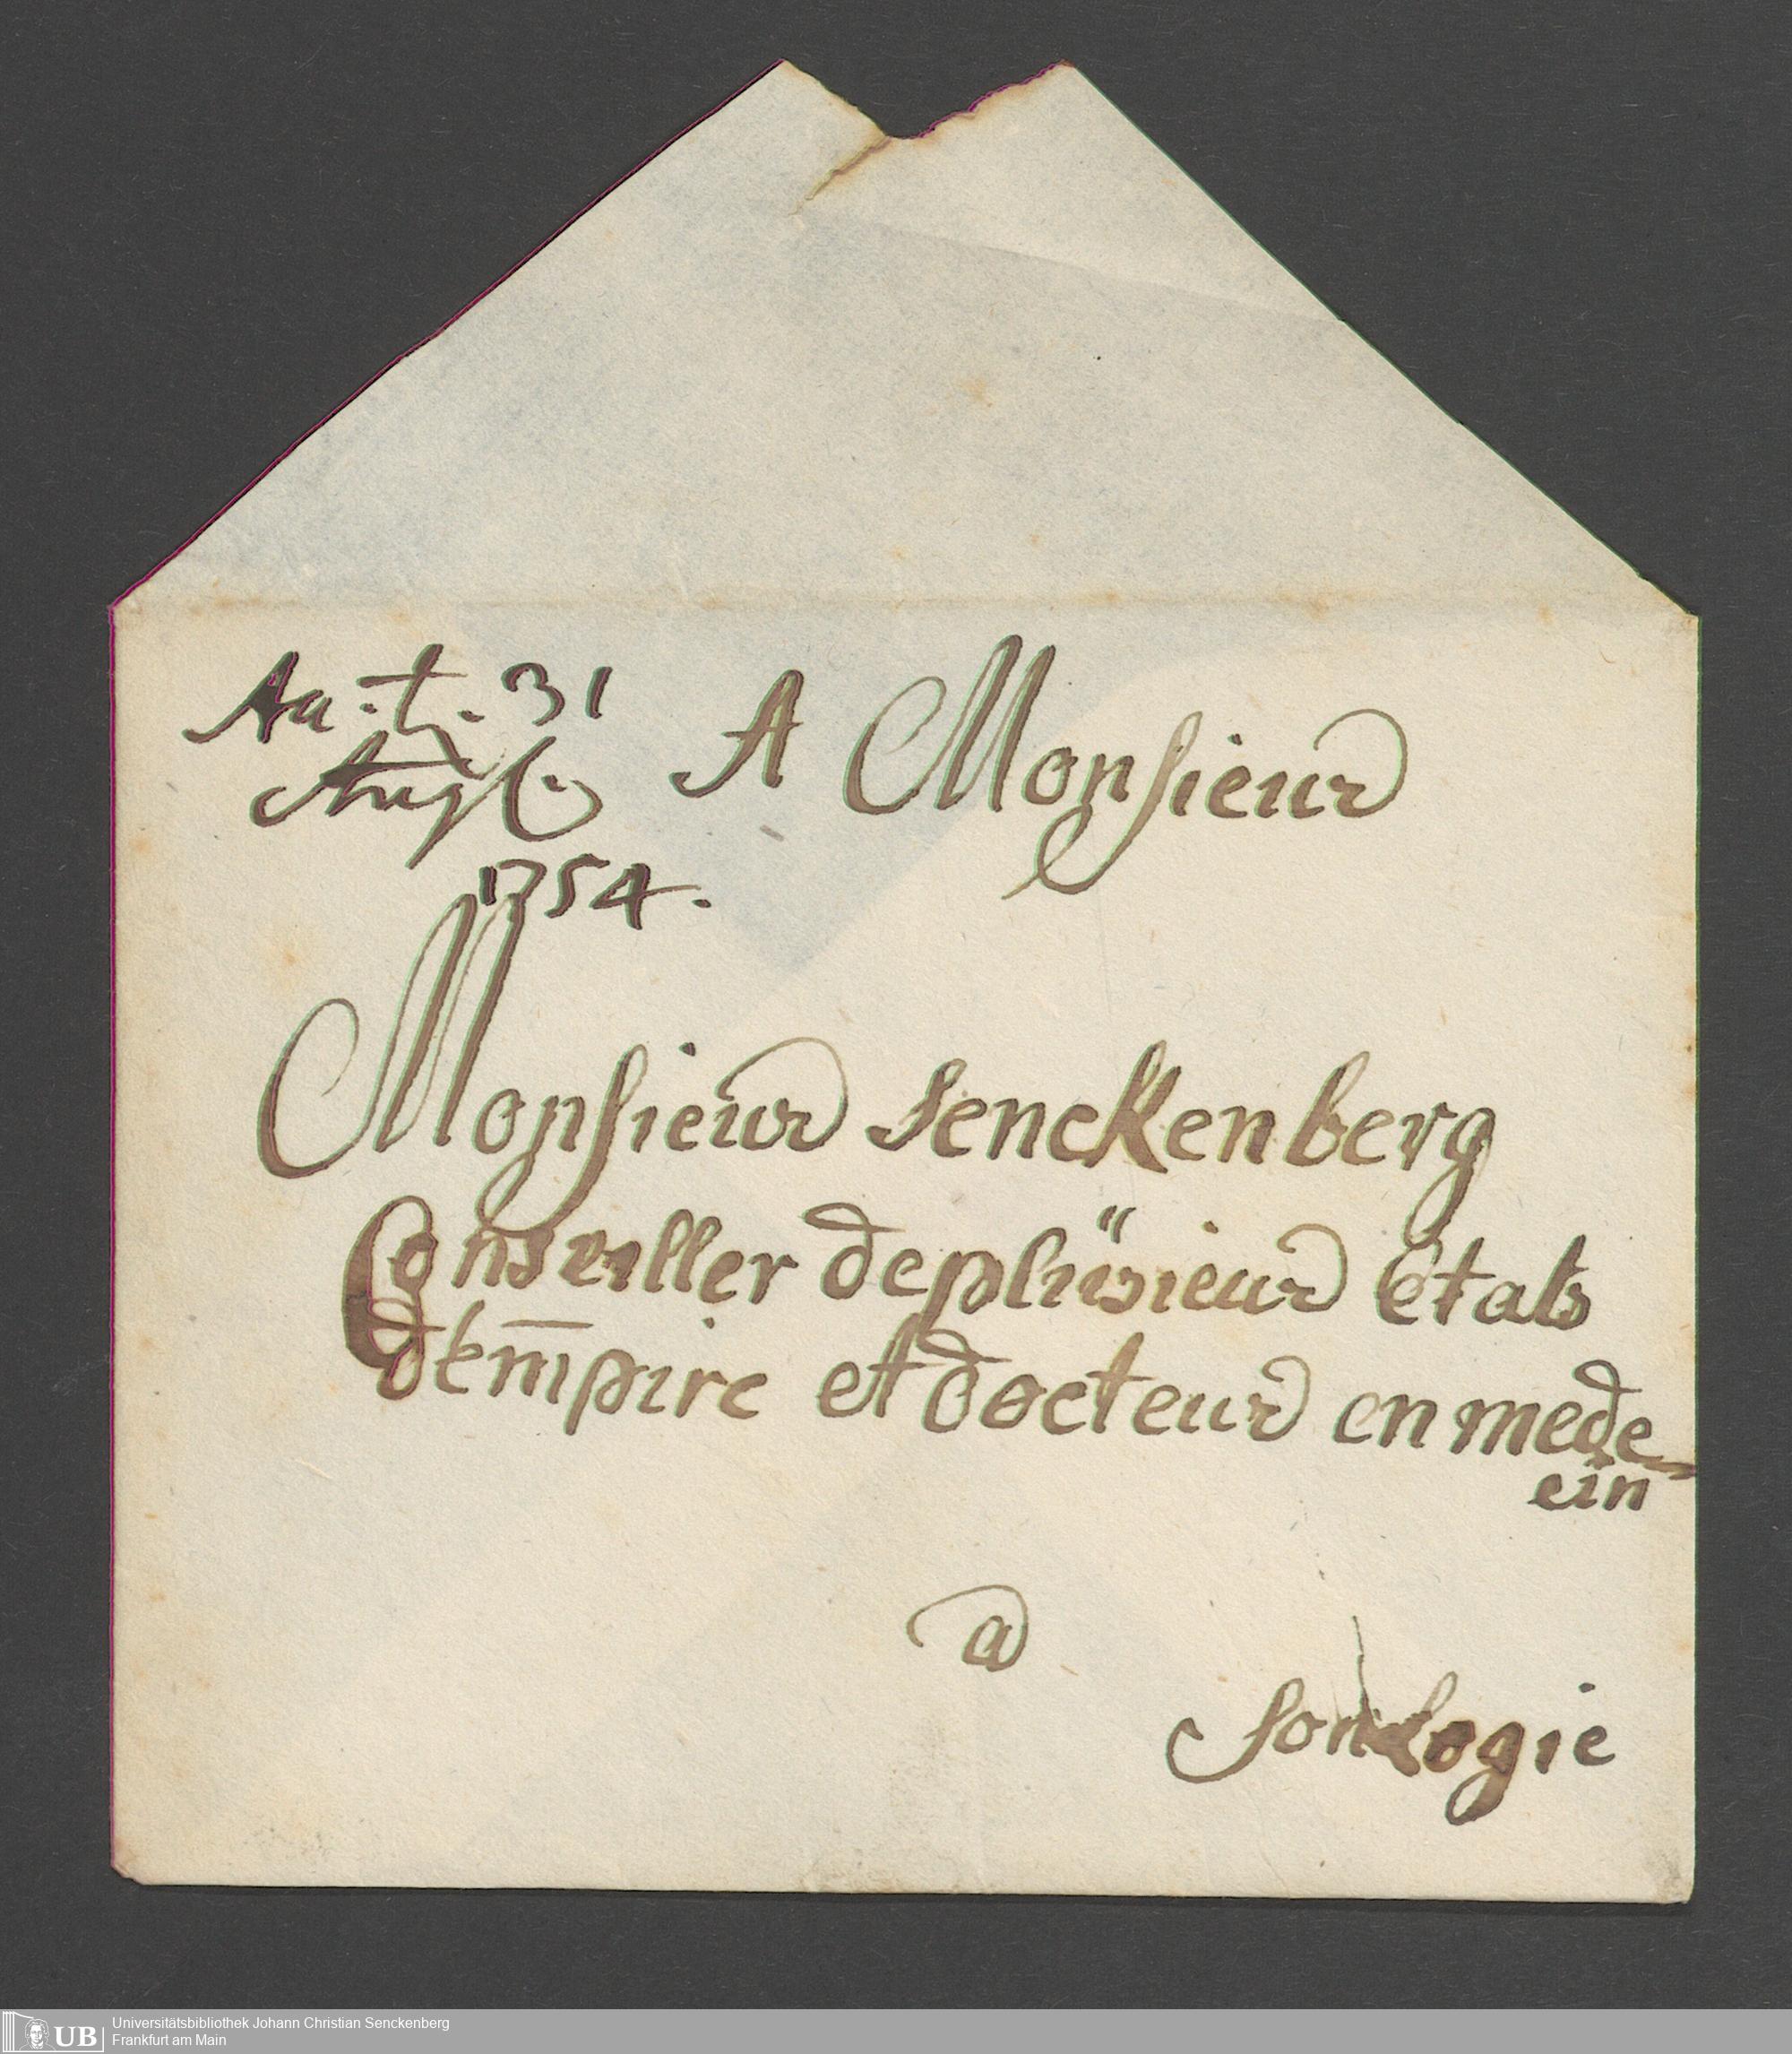 A Monsieur
31
Aug
1754.
Monsieur Senckenberg
Conseiller de plüsieur états
d'empire et docteur en mede
ein
a
logie
Universitätsbibliothek Johann Christian Senckenberg
Frankfurt am Main
UB